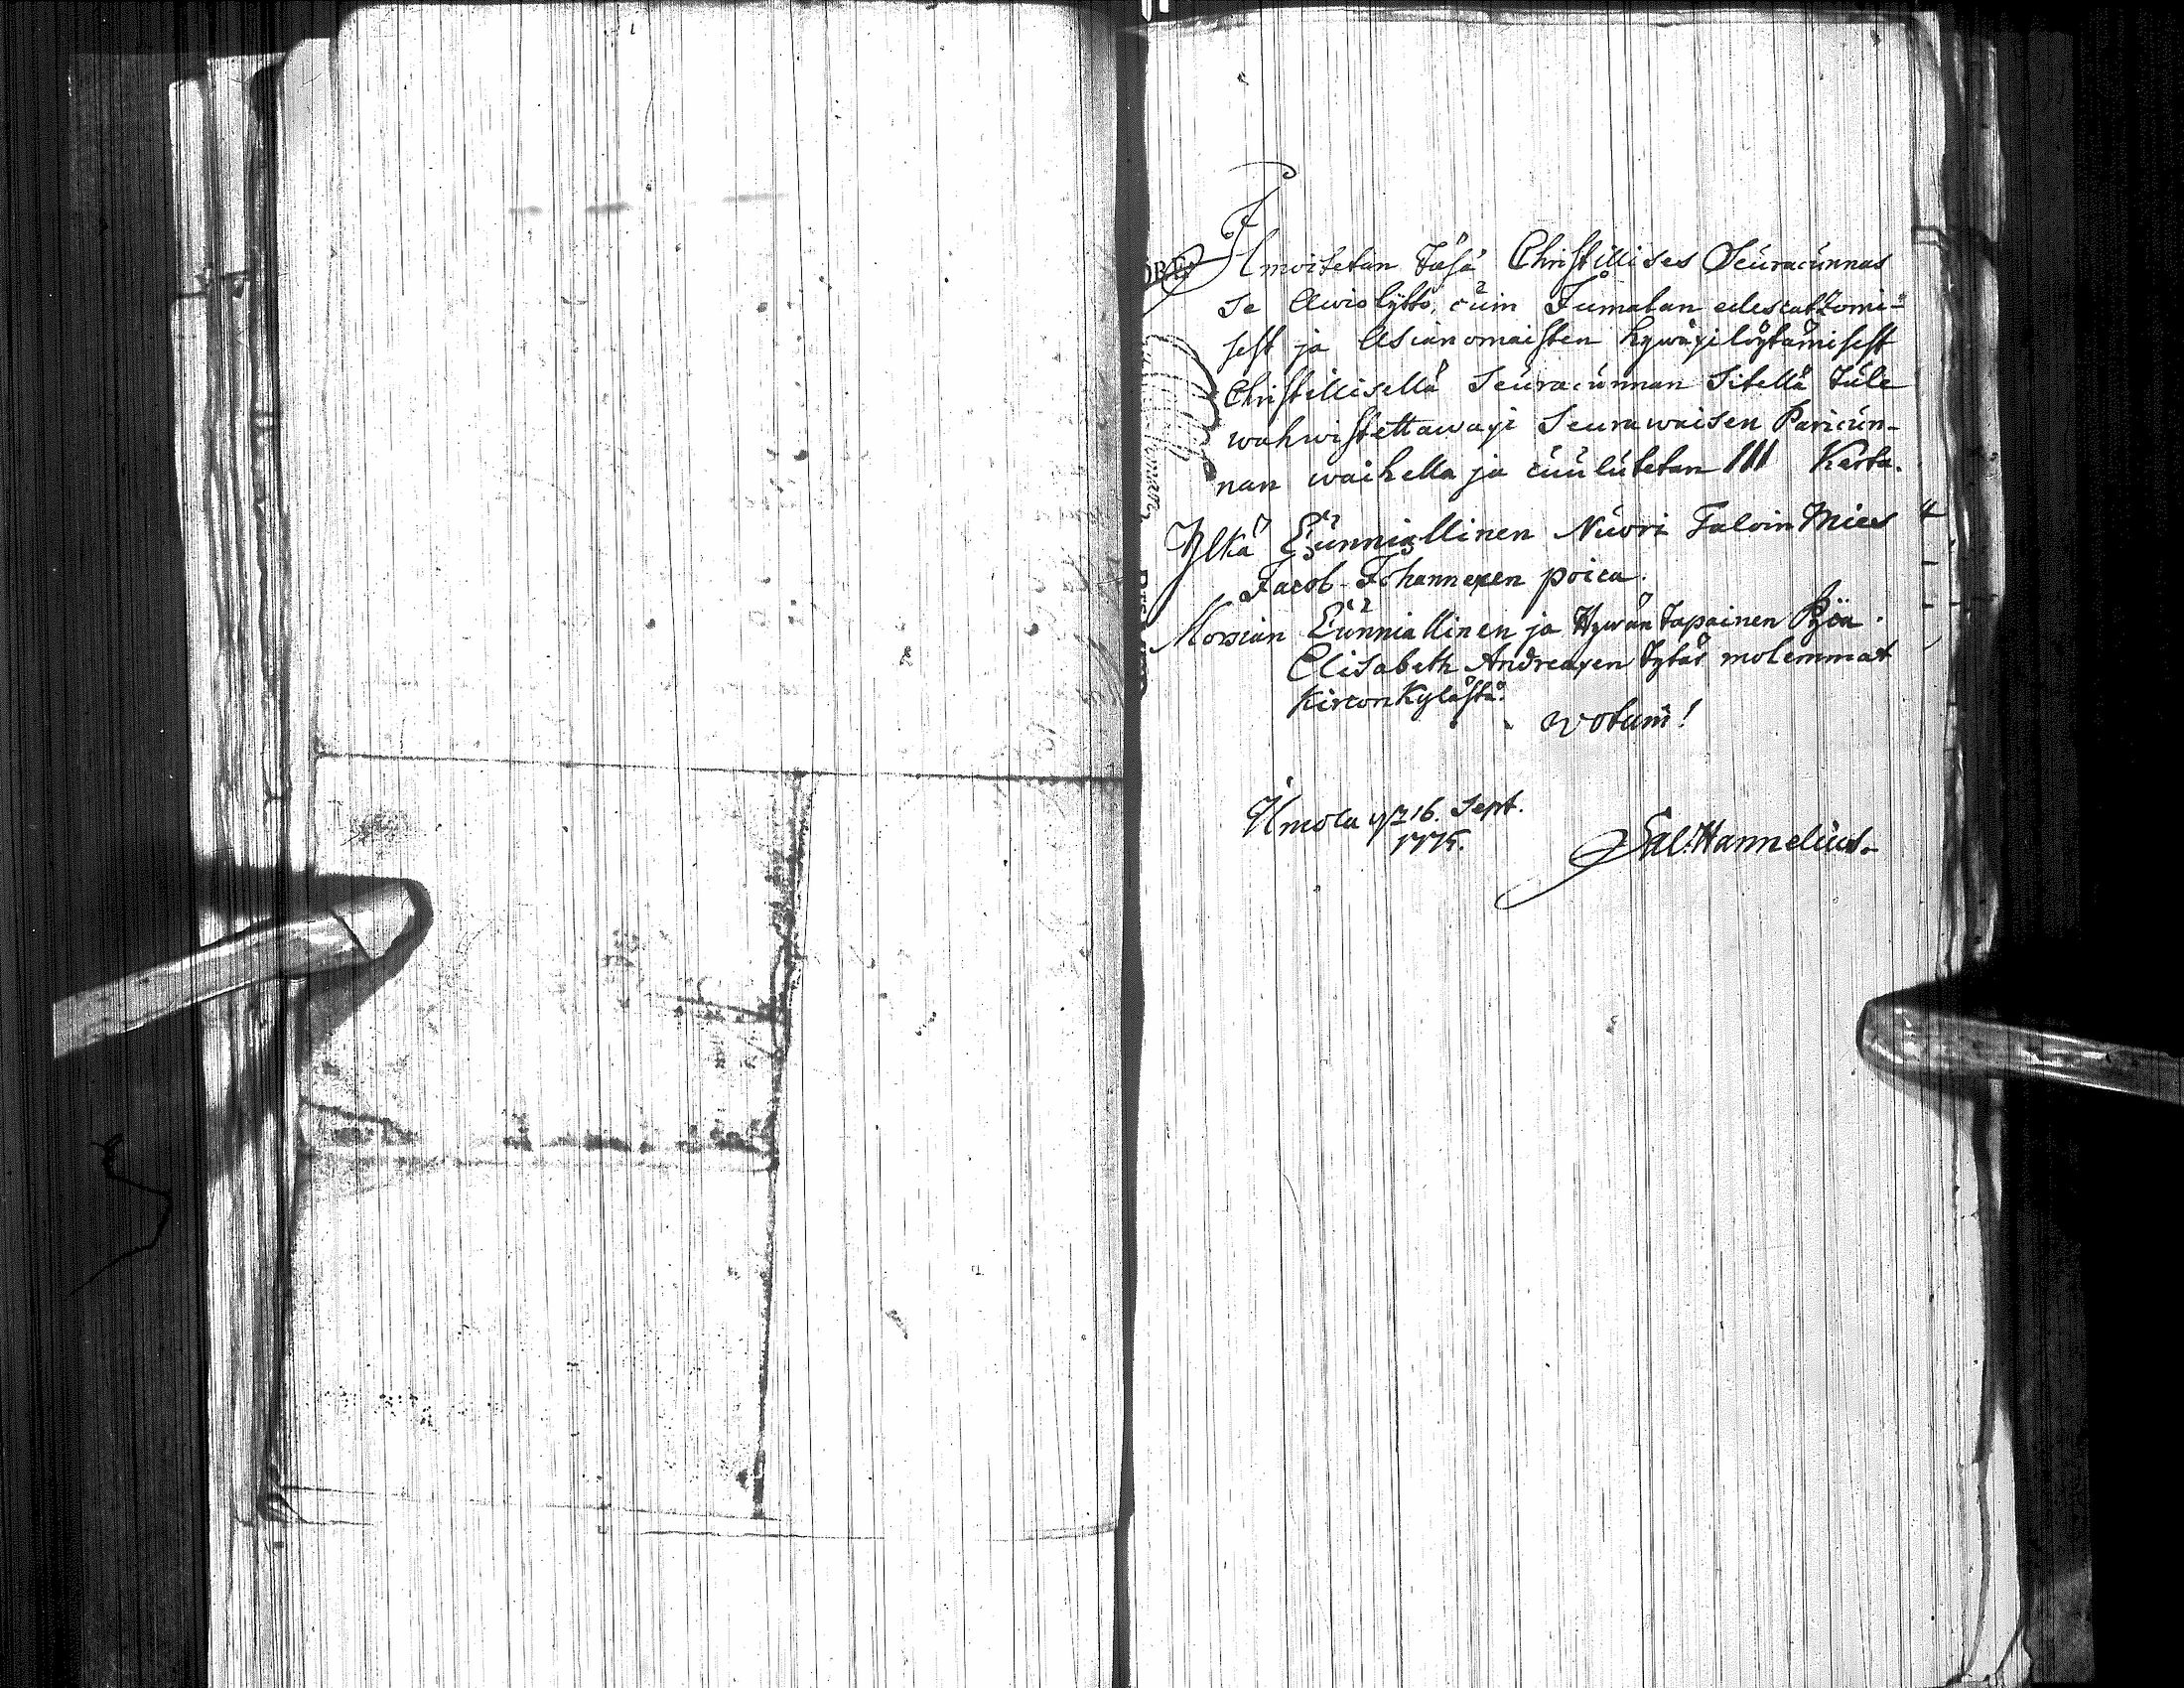 Ilmoitetan täsä Christillises Seuracunnas
se Awiolijtto, cuin Jumalan edescatzomi-
sest ja Asianomaisten hywäxilöytämisest
Christillisellä Seuracunnan Sitellä tule
wahwistettawaxi Seurawaisen Paricun-
nan waihella ja cuulutetan III Kerta.
Yljkä Cunniallinen Nuori Taloin Mies
Jacob Johannexen poica.
Morsian Cunniallinen ja Hywän tapainen Pijca
Elisabeth Andreaxen tytär molemmat
Kirconkylästä.
wotum!
Ilmola 16. Sept.
1775.
Sal: Hannelius.